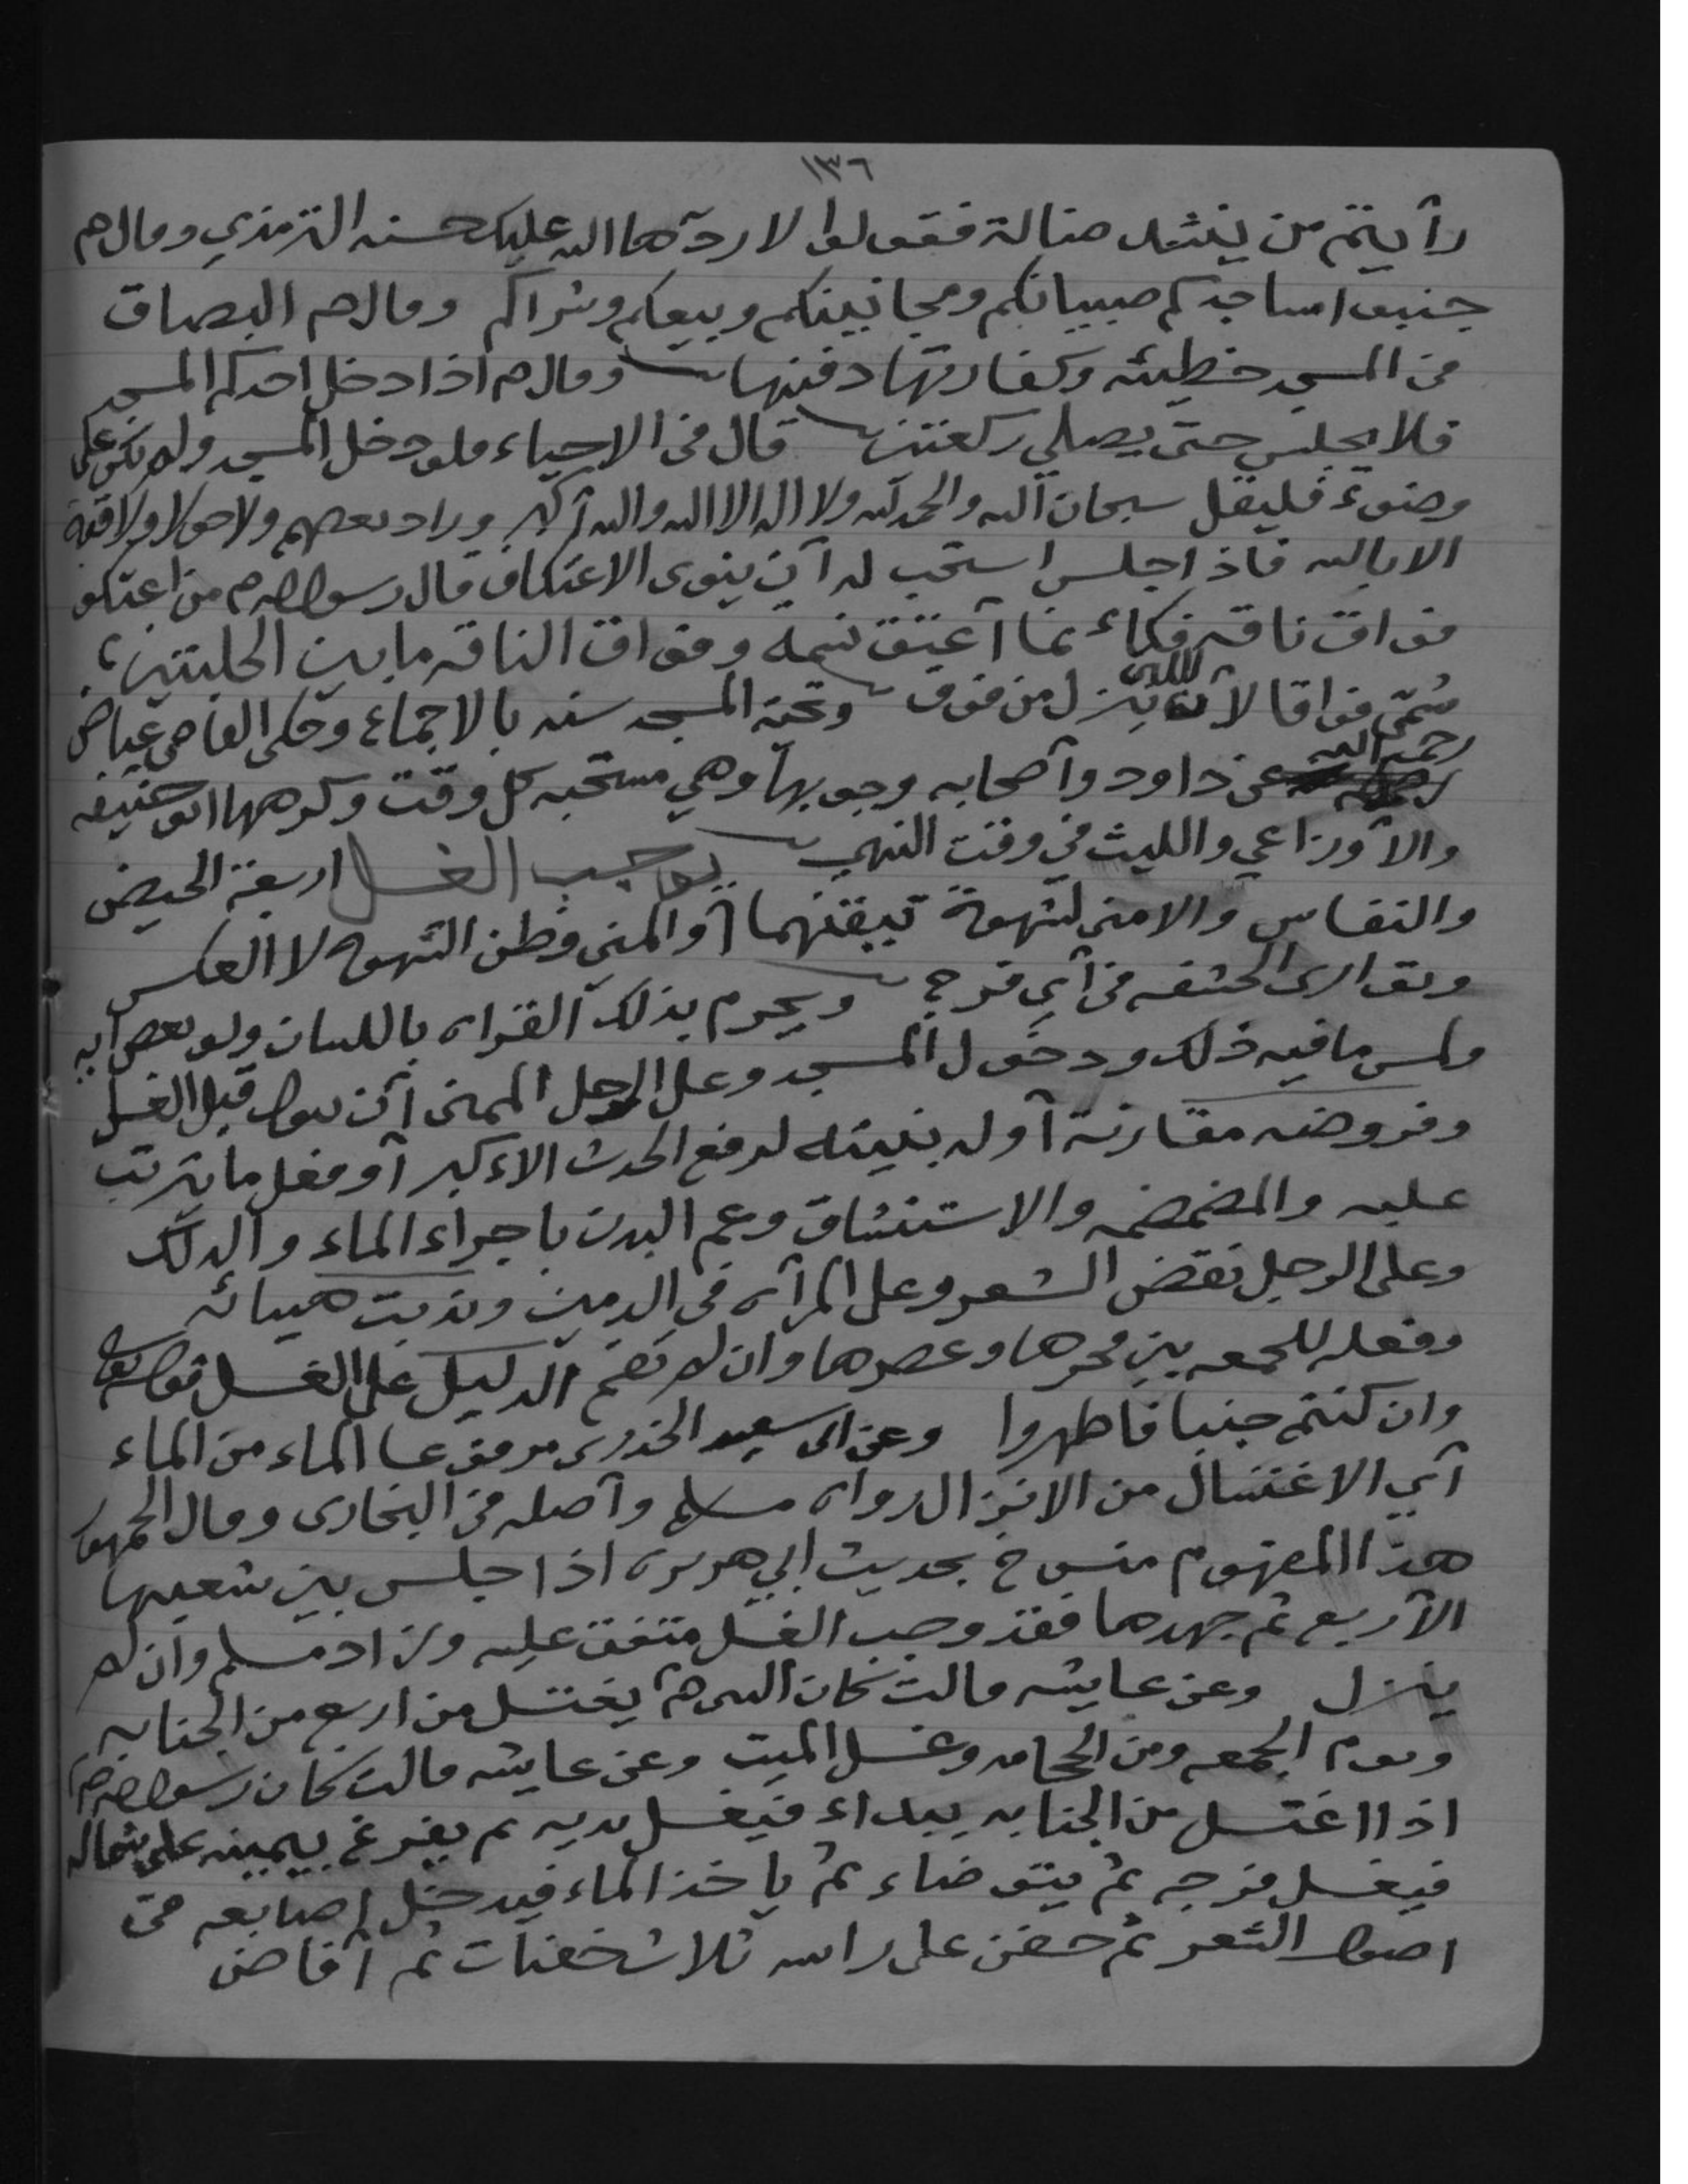 ١٣٦
رأيتم من ينشد ضالة فقولوا لا ردها الله عليك حسنه الترمذي وقال صم
جنبوا مساجدكم صبيانكم ومجانينكم وبيعكم وشراكم وقال صم البصاق
في المسجد خطيئه وكفارتها دفنها وقال صم اذا دخل احدكم المسجد
فلا يجلس حتى يصلي ركعتين قال في الاحياء فلو دخل المسجد ولم يكن على
وضوء فليقل سبحان الله والحمد لله ولا اله الا الله والله أكبر وزاد بعضهم ولا حول ولا قوة
الا بالله فاذا جلس استحب له أن ينوى الاعتكاف قال رسول الله صم من اعتكف
فواق ناقه فكاءنما أعتق نسمة وفواق الناقه ما بين الحلبتين
سُمّي فواقا لأن اللبن ينزل من فوق وتحية المسجد سنه بالاجماع وحكى القاضي عياض
رحمه الله عن داود وأصحابه وجوبها وهي مستحبه كل وقت وكرهها ابو حنيفه
والأوزاعي والليث في وقت النهي يوجب الغسل اربعة الحيض
والنفاس والامنى لشهوة تيقنهما أو المني وظن الشهوه لا العكس
وتوارى الحشفه في أي فرج ويحرم بذلك القراه باللسان ولو بعض ايه
ولمس ما فيه ذلك ودخول المسجد وعلى الرجل الممنى أن يبول قبل الغسل
وفروضه مقارنة أوله بنيته لرفع الحدث الاءكبر أو فعل ما يترتب
عليه والمضمضه والاستنشاق وعم البدن باجراء الماء والدلك
وعلى الرجل نقض الشعر وعلى المرأه في الدمين وندبت هيبائه
وفعله للجمعه بين فجرها وعصرها وان لم تقم الدليل على الغسل قوله تعالى
وان كنتم جنبا فاطهروا وعن ابى سعيد الخدرى مرفوعا الماء من الماء
أي الاغتسال من الانزال رواه مسلم وأصله في البخارى وقال الجمهور
هذا المفهوم منسوخ بحديث ابي هريره اذا جلس بين شعبها
الأربع ثم جهدها فقد وجب الغسل متفق عليه وزاد مسلم وان لم
ينزل وعن عايشه قالت كان النبى صم يغتسل من اربع من الجنابه
ويوم الجمعه ومن الحجامه وغسل الميت وعن عايشه قالت كان رسول الله صم
اذا اغتسل من الجنابه يبداء فيغسل يديه ثم يفرغ بيمينه على شماله
فيغسل فرجه ثم يتوضاء ثم ياخذ الماء فيدخل اصابعه في
اصول الشعر ثم حفن على راسه ثلاث حفنات ثم أفاض